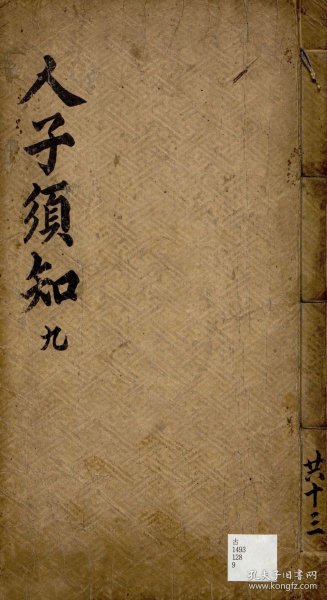 人子須知
九
共十三
古
1493
128
9
孔夫子旧书网
www.kongfz.com